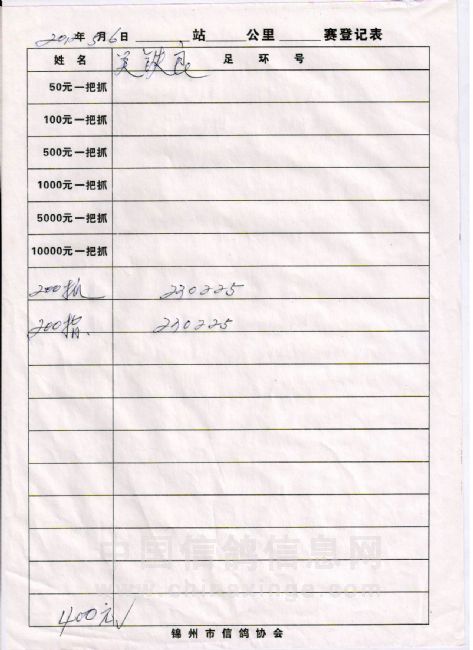 2012年5月6日 站 公里 赛登记表
姓名 足环号
50元一把抓
100元一把抓
500元一把抓
1000元一把抓
5000元一把抓
10000元一把抓
200抓 230225
200指 230225
中国信鸽信息网
www.chinaxinge.com
400元√
锦州市信鸽协会